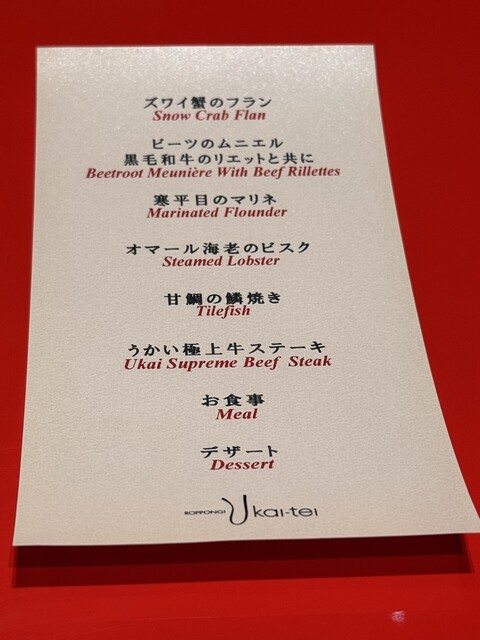 ズワイ蟹のフラン
Snow Crab Flan
ビーツのムニエル
黒毛和牛のリエットと共に
Beetroot Meunière With Beef Rillettes
寒平目のマリネ
Marinated Flounder
オマール海老のビスク
Steamed Lobster
甘鯛の鱗焼き
Tilefish
うかい極上牛ステーキ
Ukai Supreme Beef Steak
お食事
Meal
デザート
Dessert
ROPPONGI Ukai-tei